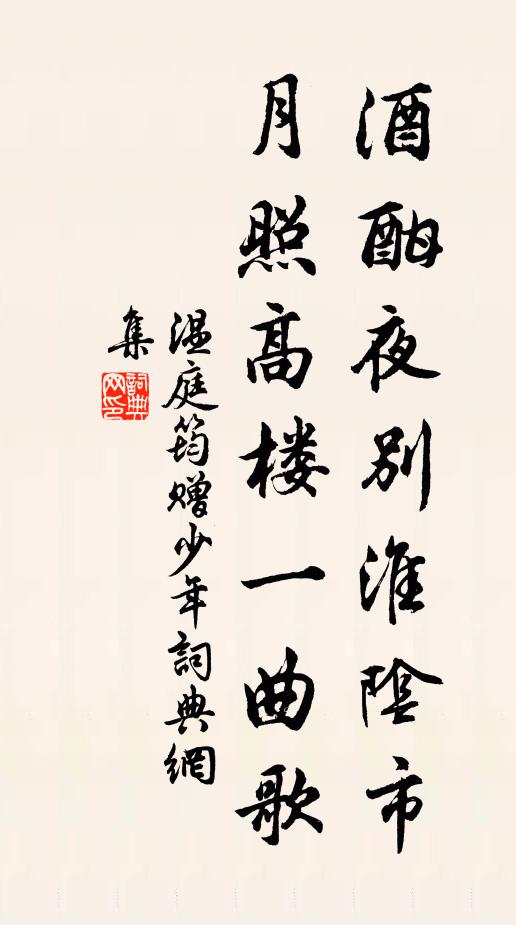 酒酣夜別淮陰市
月照高楼一曲歌
温庭筠赠少年詞典網
集
詞典网印